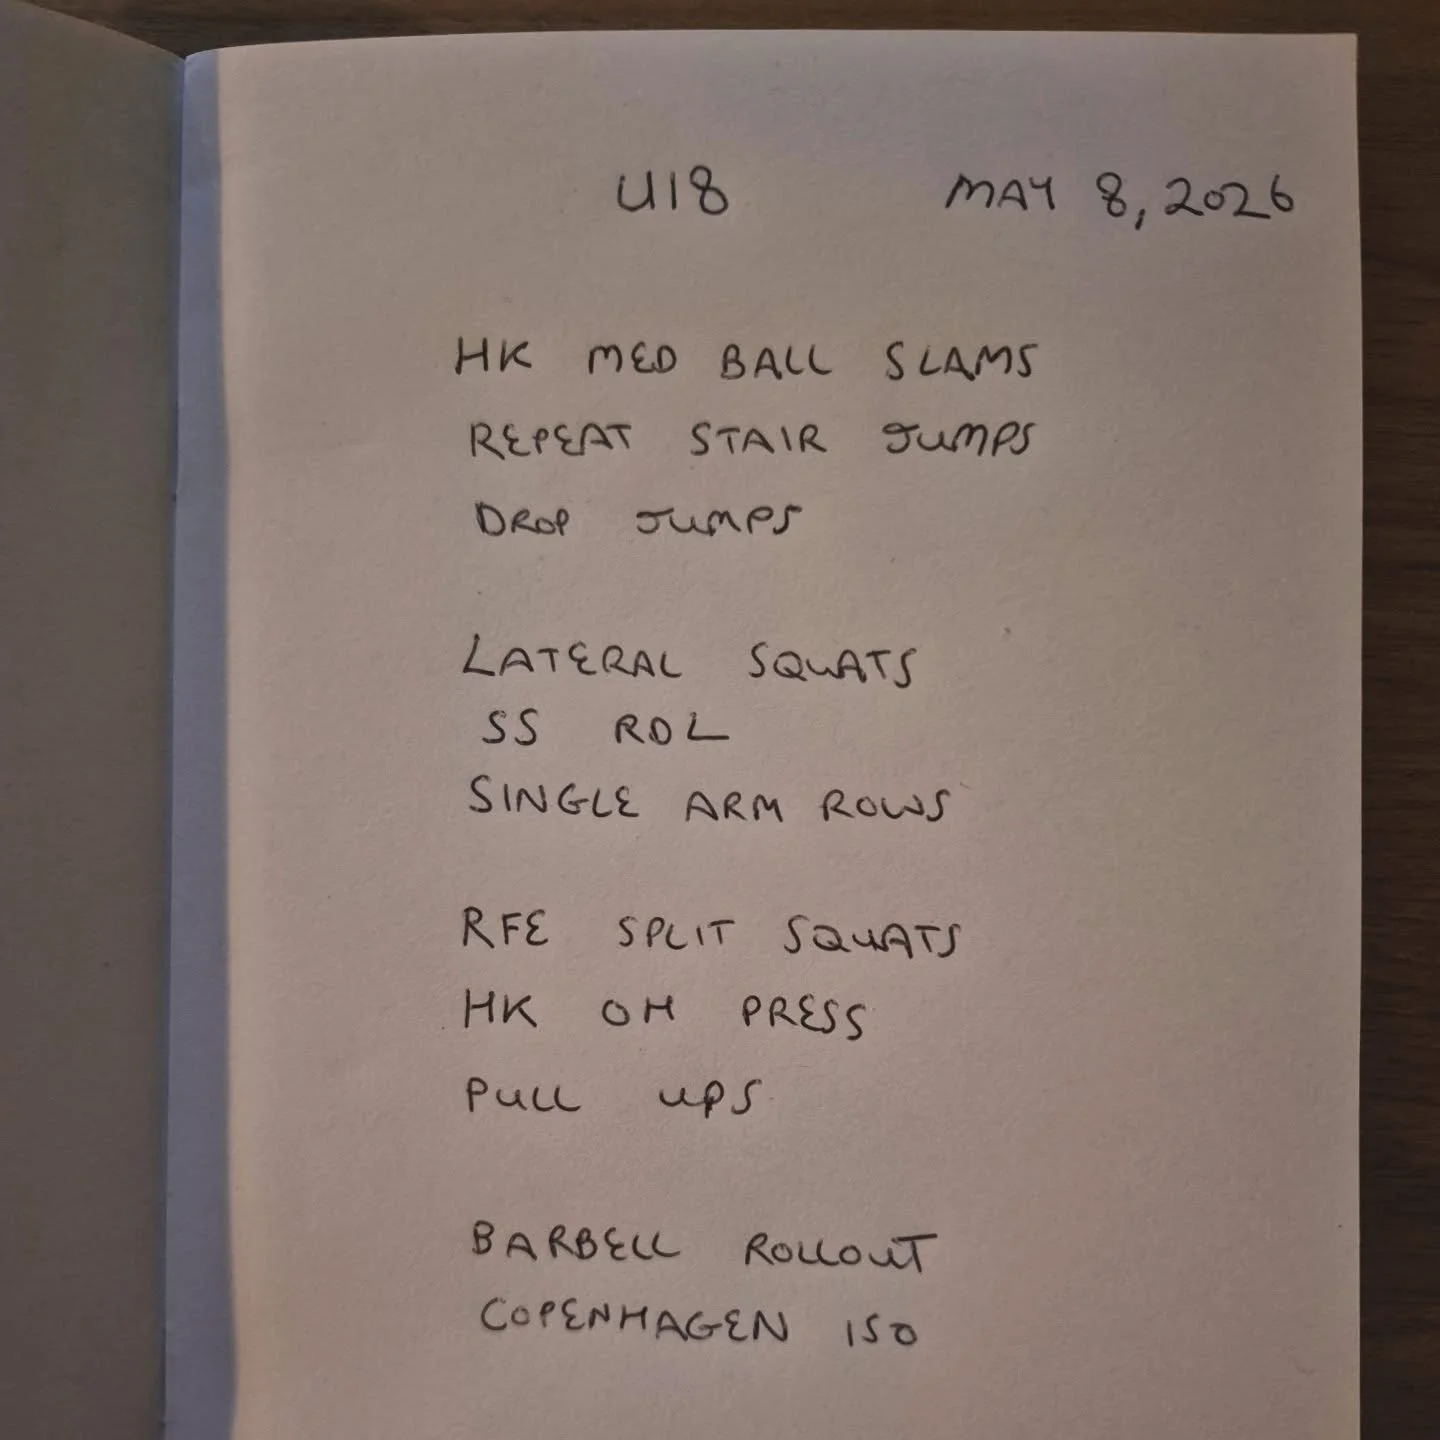 U18 MAY 8, 2026
HK MED BALL SLAMS
REPEAT STAIR JUMPS
DROP JUMPS
LATERAL SQUATS
SS RDL
SINGLE ARM ROWS
RFE SPLIT SQUATS
HK OH PRESS
PULL UPS
BARBELL ROLLOUT
COPENHAGEN ISO